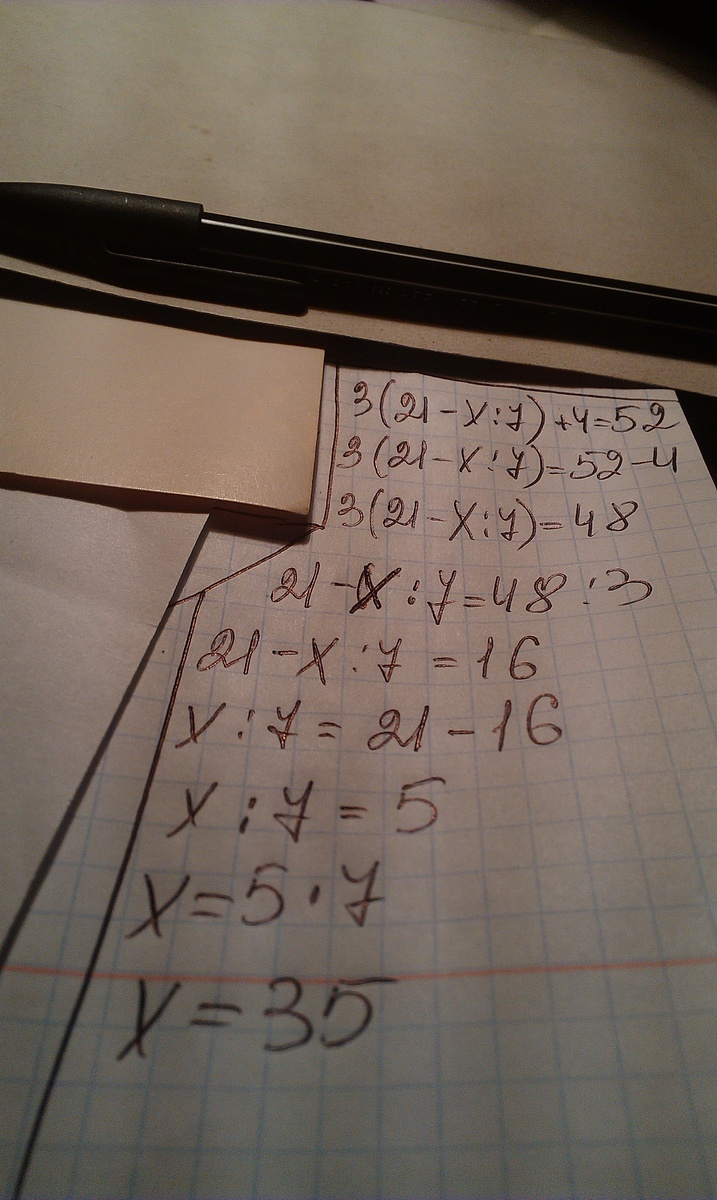 3(21-x:7)+4=52
3(21-x:7)=52-4
3(21-x:7)=48
21-x:7=48:3
21-x:7=16
x:7=21-16
x:7=5
x=5·7
x=35